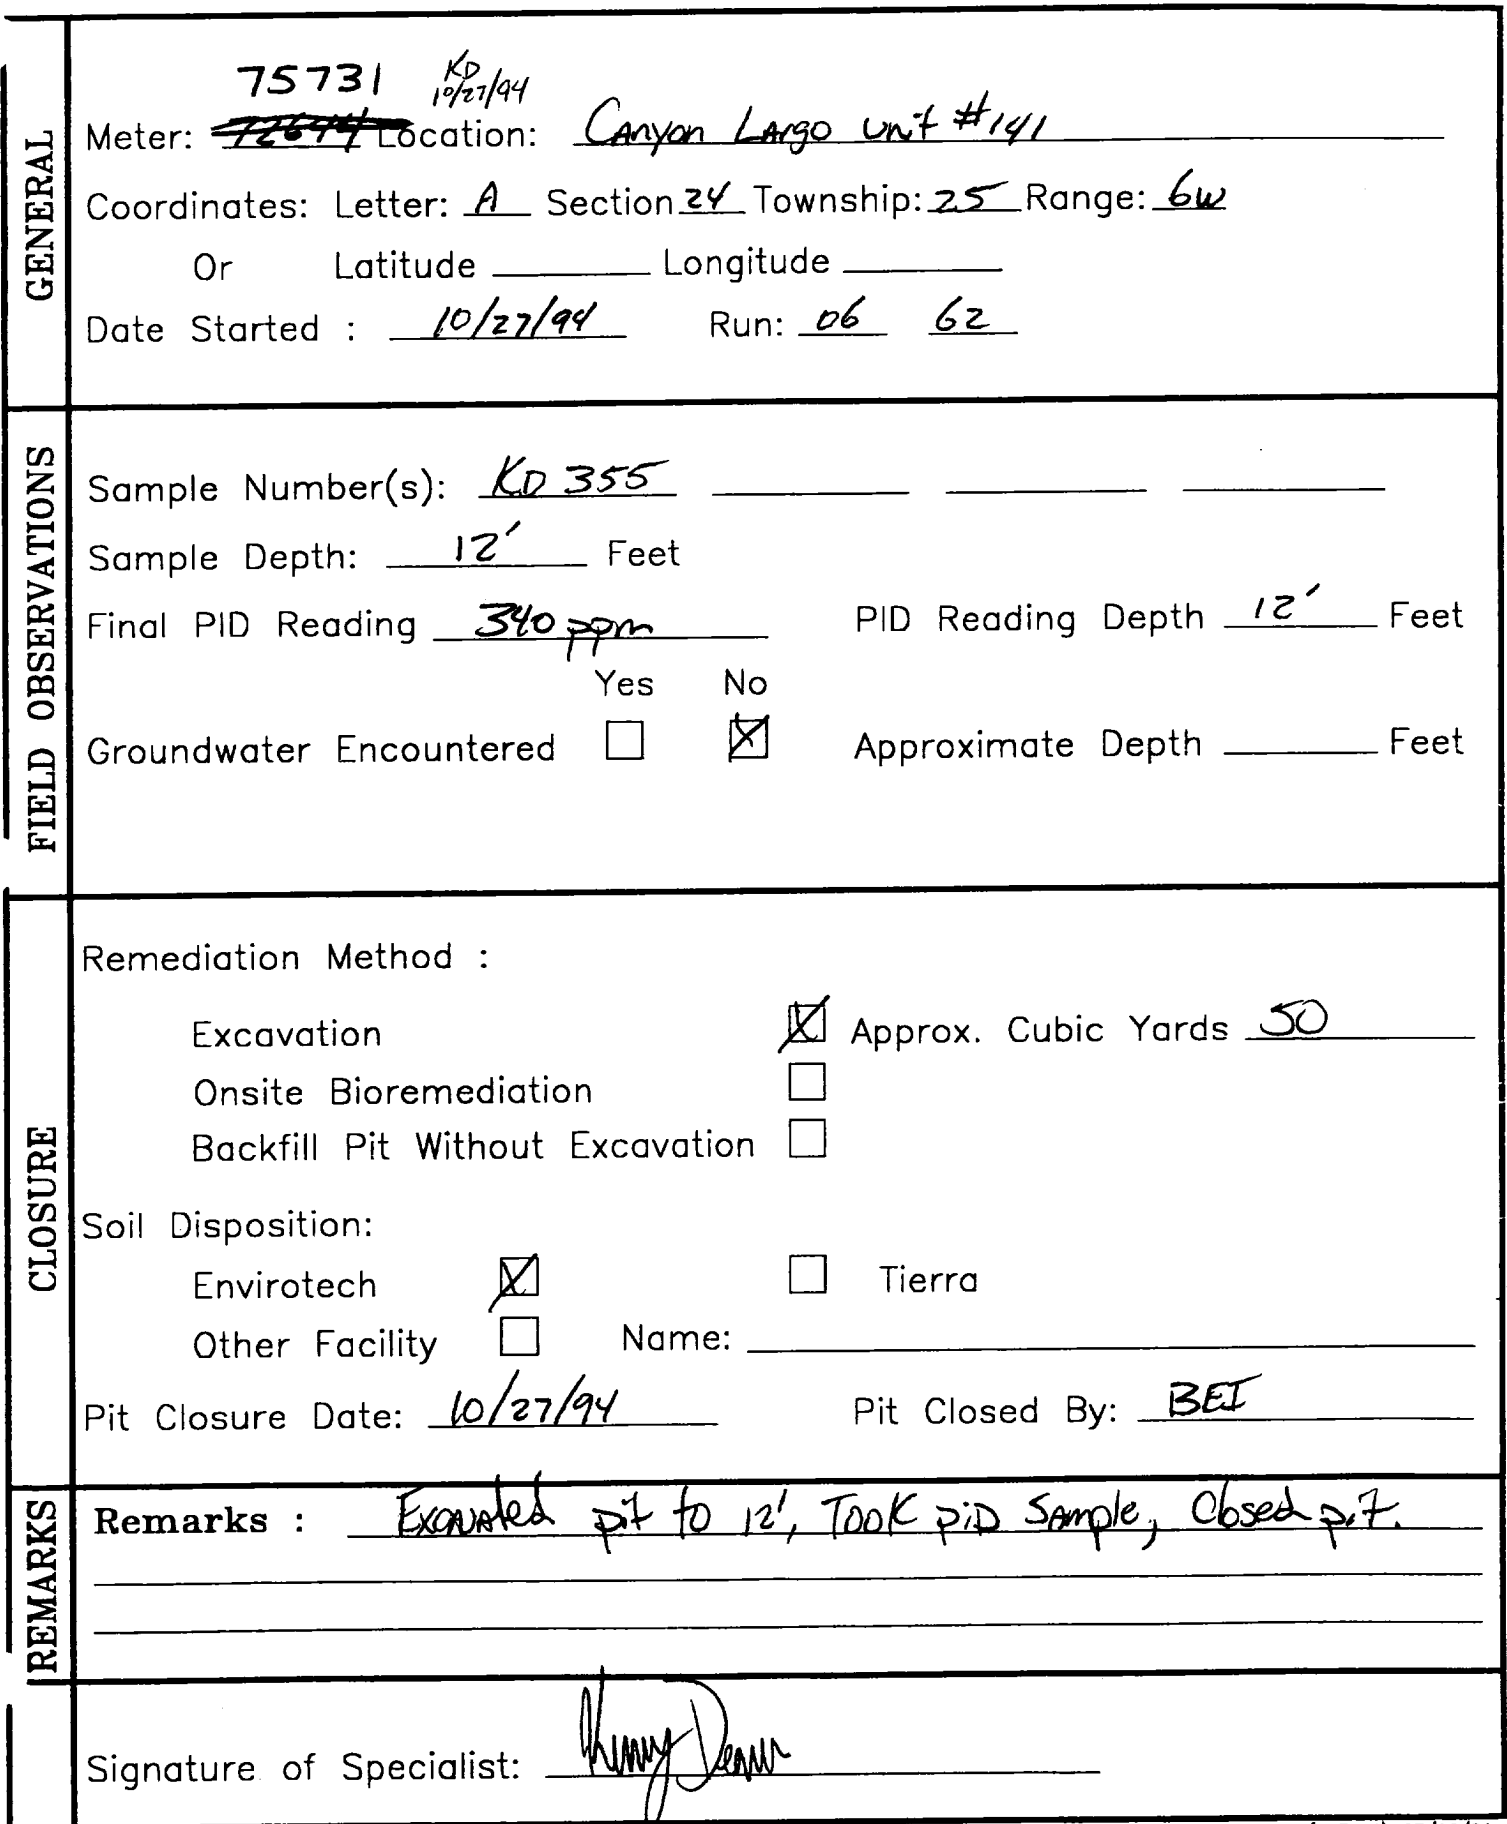 GENERAL
75731 KD 10/27/94
Meter: Location: Canyon Largo Unit #141
Coordinates: Letter: A Section 24 Township: 25 Range: 6W
Or Latitude Longitude
Date Started : 10/27/94 Run: 06 62
FIELD OBSERVATIONS
Sample Number(s): KD 355
Sample Depth: 12' Feet
Final PID Reading 340 ppm PID Reading Depth 12' Feet
Yes No
Groundwater Encountered Approximate Depth Feet
CLOSURE
Remediation Method :
Excavation Approx. Cubic Yards 50
Onsite Bioremediation
Backfill Pit Without Excavation
Soil Disposition:
Envirotech Tierra
Other Facility Name:
Pit Closure Date: 10/27/94 Pit Closed By: BEI
REMARKS
Remarks : Excavated pit to 12', Took PID Sample, Closed pit.
Signature of Specialist: